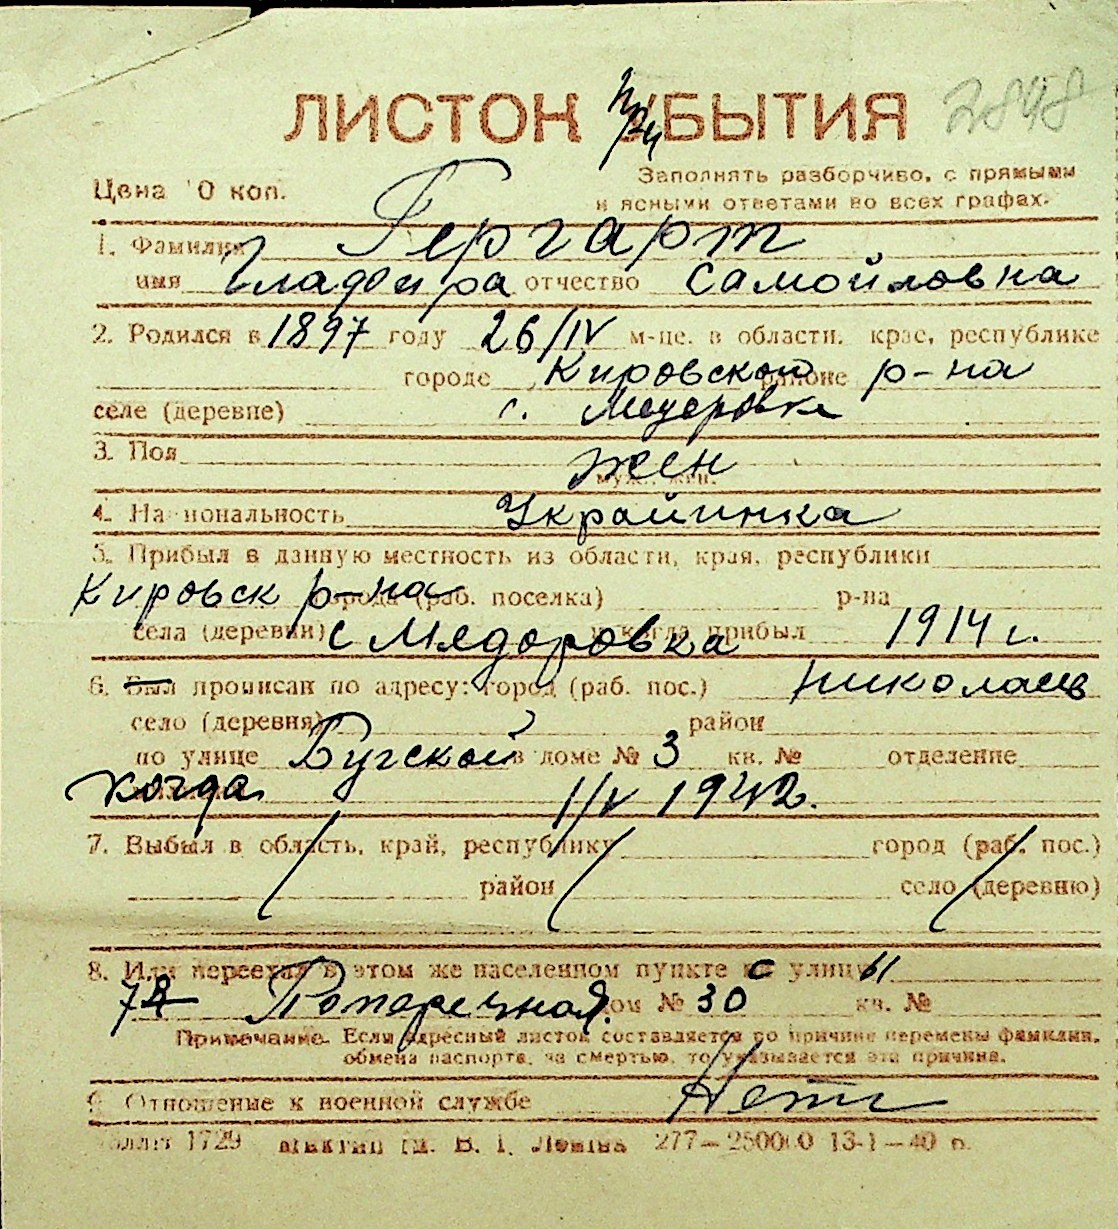 ЛИСТОК При УБЫТИЯ 2848
Цена 10 коп. Заполнять разборчиво, с прямыми
и ясными ответами во всех графах.
1. Фамилия Гергарт
имя Гладфира отчество Самойловна
2. Родился в 1897 году 26/IV м-це. в области, крае, республике
городе Кировской районе р-на
селе (деревне) с. Медеровке
3. Пол жен
муж., жен.
4. Национальность Украйинка
5. Прибыл в данную местность из области, края, республики
Кировск р-на города (раб. поселка) р-на
села (деревни) с Мядоровка и когда прибыл 1914 г.
6. Был прописан по адресу: город (раб. пос.) Николаев
село (деревня) район
по улице Бугской в доме № 3 кв. № отделение
когда 1/V 1942.
7. Выбыл в область, край, республику город (раб. пос.)
район село (деревню)
8. Или переехал в этом же населенном пункте с улицы
7я Поперечная. дом № 30 кв. №
Примечание. Если адресный листок составляется по причине перемены фамилии,
обмена паспорта, за смертью, то указывается эта причина.
9. Отношение к военной службе Нет
1729 277—250000 13-1—40 р.